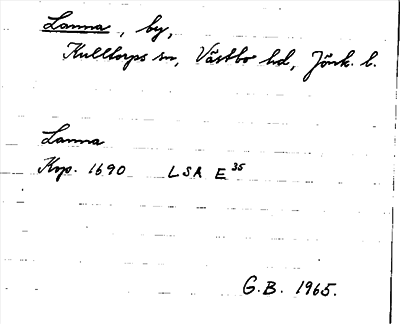 Lanna, by,
Kulltorps sn, Västbo hd, Jönk. l.
Lanna
Krp. 1690 LSA E 35
G.B. 1965.